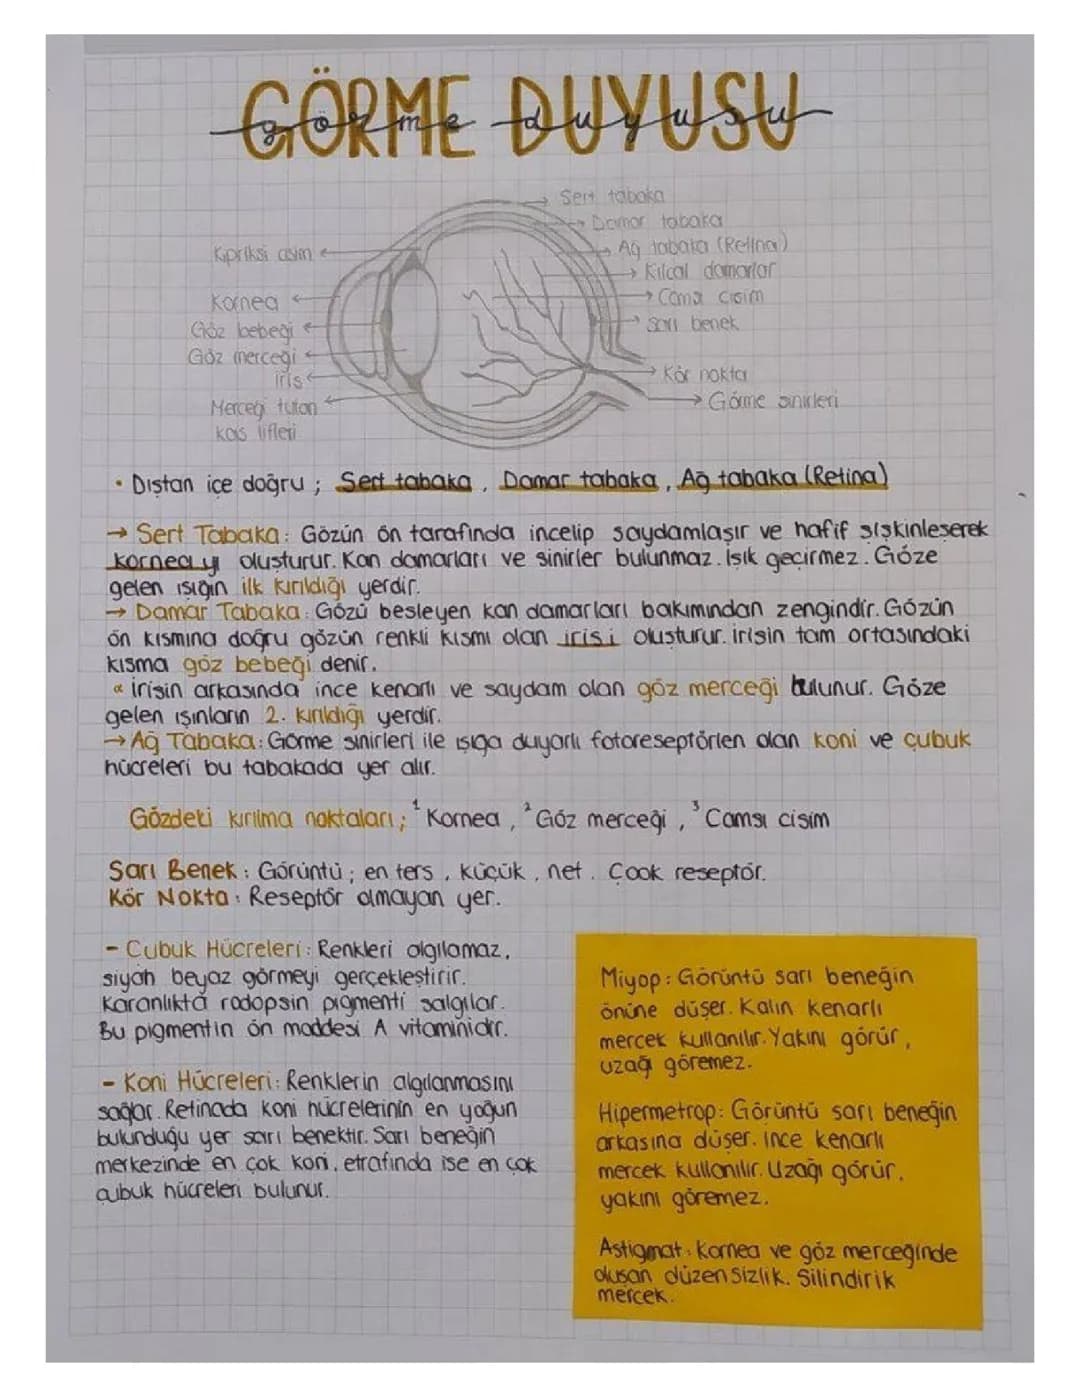 GÖRME DUYUSU
görme duyusu
Sert tabaka
Damar tabaka
Ağ tabaka (Retina)
Kılcal damarlar
Camsı cisim
Sarı benek
Kör nokta
Görme sinirleri
Kipriksi cisim
Kornea
Göz bebeği
Göz merceği
İris
Merceği tutan
kas lifleri
• Dıştan içe doğru ; Sert tabaka , Damar tabaka , Ağ tabaka (Retina)
→ Sert Tabaka : Gözün ön tarafında incelip saydamlaşır ve hafif şişkinleşerek
korneayı oluşturur. Kan damarları ve sinirler bulunmaz. Işık geçirmez. Göze
gelen ışığın ilk kırıldığı yerdir.
→ Damar Tabaka : Gözü besleyen kan damarları bakımından zengindir. Gözün
ön kısmına doğru gözün renkli kısmı olan irisi oluşturur. İrisin tam ortasındaki
kısma göz bebeği denir.
∝ İrisin arkasında ince kenarlı ve saydam olan göz merceği bulunur. Göze
gelen ışınların 2. kırıldığı yerdir.
→ Ağ Tabaka : Görme sinirleri ile ışığa duyarlı fotoreseptörlen olan koni ve çubuk
hücreleri bu tabakada yer alır.
Gözdeki kırılma noktaları ; ¹ Kornea , ² Göz merceği , ³ Camsı cisim
Sarı Benek : Görüntü ; en ters , küçük , net . Çook reseptör.
Kör Nokta : Reseptör olmayan yer.
- Çubuk Hücreleri : Renkleri algılamaz,
siyah beyaz görmeyi gerçekleştirir.
Karanlıkta rodopsin pigmenti salgılar.
Bu pigmentin ön maddesi A vitaminidir.
- Koni Hücreleri : Renklerin algılanmasını
sağlar. Retinada koni hücrelerinin en yoğun
bulunduğu yer sarı benektir. Sarı beneğin
merkezinde en çok koni, etrafında ise en çok
çubuk hücreleri bulunur.
Miyop : Görüntü sarı beneğin
önüne düşer. Kalın kenarlı
mercek kullanılır. Yakını görür,
uzağı göremez.
Hipermetrop : Görüntü sarı beneğin
arkasına düşer. İnce kenarlı
mercek kullanılır. Uzağı görür,
yakını göremez.
Astigmat : Kornea ve göz merceğinde
oluşan düzensizlik. Silindirik
mercek.